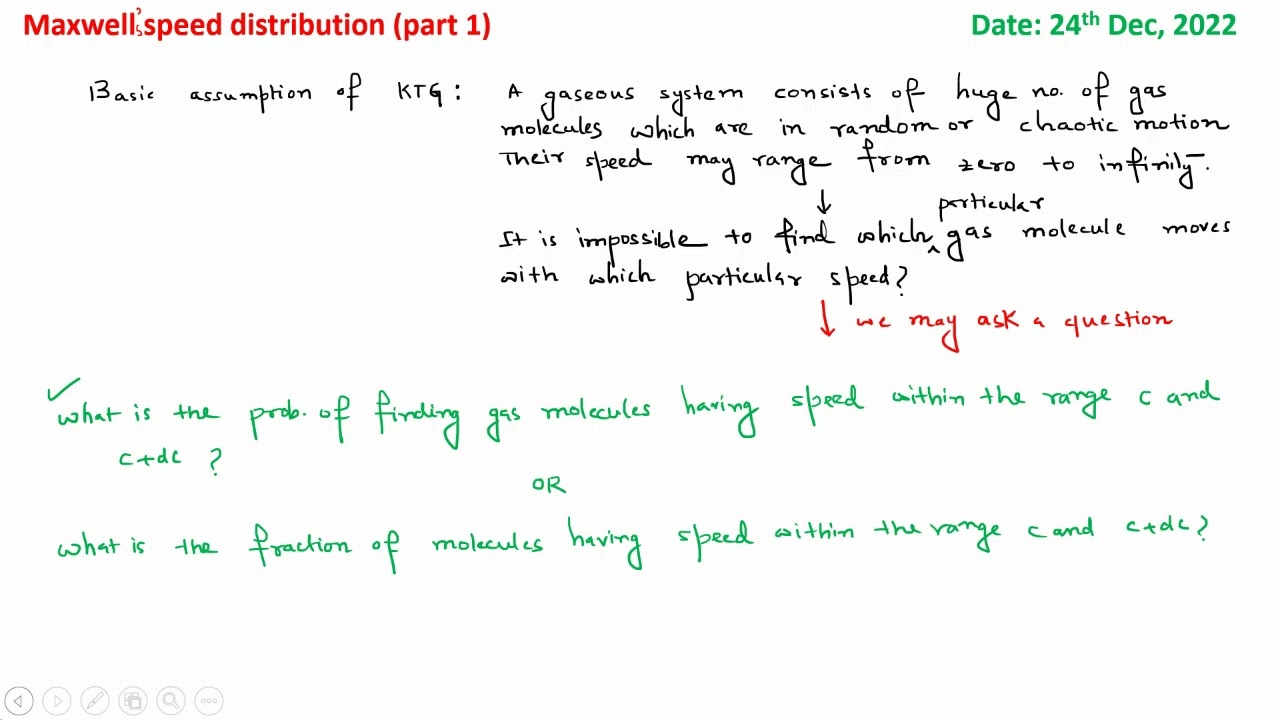 Maxwell's speed distribution (part 1)
Date: 24th Dec, 2022
Basic assumption of KTG : A gaseous system consists of huge no. of gas
molecules which are in random or chaotic motion
Their speed may range from zero to infinity.
↓
particular
It is impossible to find which ^ gas molecule moves
with which particular speed?
↓ we may ask a question
✓
what is the prob. of finding gas molecules having speed within the range c and
c+dc ?
OR
what is the fraction of molecules having speed within the range c and c+dc?